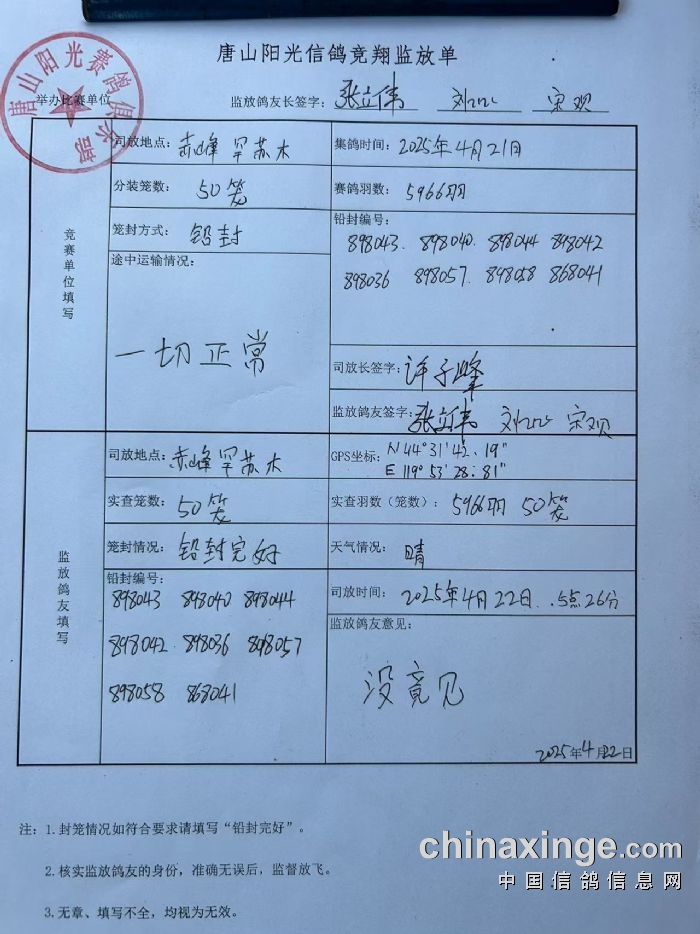 唐山阳光信鸽竞翔监放单
唐山阳光赛鸽俱乐部
举办比赛单位 监放鸽友长签字: 张立伟 宋观
竞赛单位填写
司放地点: 赤峰 罕苏木 集鸽时间: 2025年4月21日
分装笼数: 50笼 赛鸽羽数: 5966羽
笼封方式: 铅封 铅封编号:
898043. 898040. 898044 898042
898036 898057. 898058 868041
途中运输情况:
一切正常
司放长签字: 许子峰
监放鸽友签字: 张立伟 宋观
监放鸽友填写
司放地点: 赤峰 罕苏木 GPS坐标: N 44°31'42.19"
E 119°53'28:81"
实查笼数: 50笼 实查羽数(笼数): 5966羽 50笼
笼封情况: 铅封完好 天气情况: 晴
铅封编号:
898043 898040 898044
898042 898036 898057
898058 868041
司放时间: 2025年4月22日. 5点26分
监放鸽友意见:
没意见
2025年4月22日
注: 1.封笼情况如符合要求请填写“铅封完好”。
2.核实监放鸽友的身份，准确无误后，监督放飞。
3.无章、填写不全，均视为无效。
chinaxinge.com
中国信鸽信息网